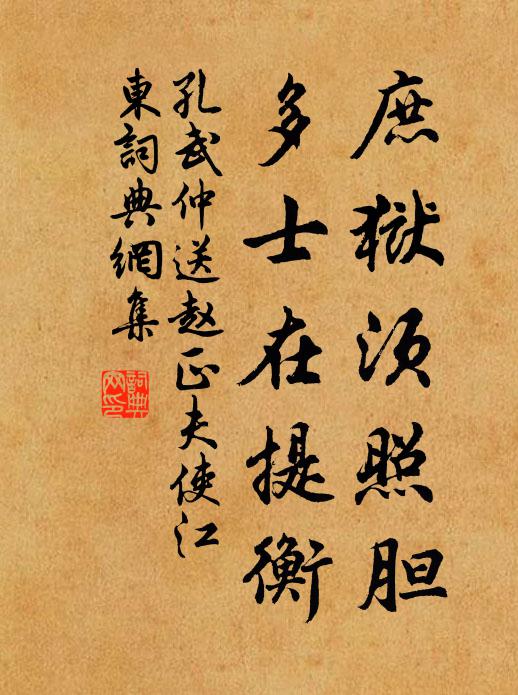 庶獄须照胆
多士在提衡
孔武仲送赵正夫使江
東詞典網集
詞典
网印